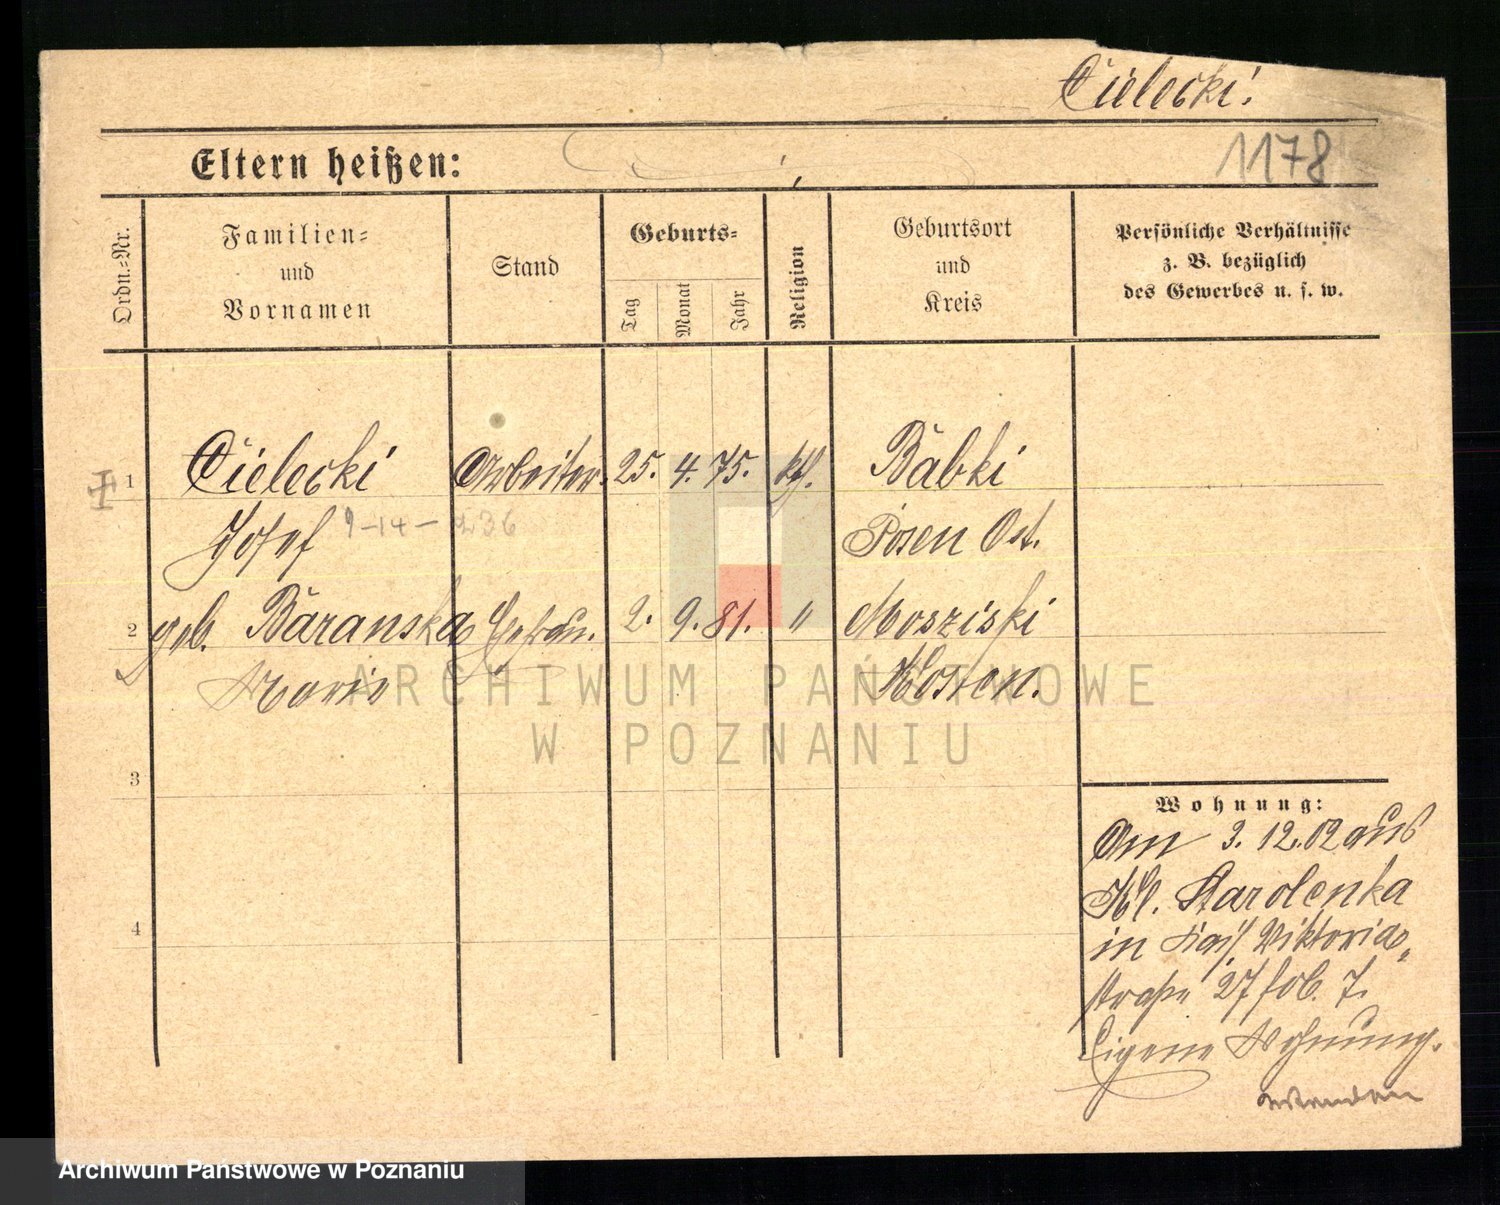 Cielecki.
1178
Eltern heißen:
Ordn.-Nr.
Familien- und Vornamen
Stand
Geburts-
Tag
Monat
Jahr
Religion
Geburtsort und Kreis
Persönliche Verhältnisse
z. B. bezüglich
des Gewerbes u. s. w.
1 Cielecki Arbeiter 25. 4. 75. kth. Babki
Josef 9-14- Posen Ost.
2 geb. Baranska Ehefrau. 2. 9. 81. " Mosziski
Marie Kosten.
ARCHIWUM PAŃSTWOWE
W POZNANIU
3
4
Wohnung:
Am 3.12.02 aus
Kl. Starolenka
in Viktoria-
straße 27 bei
Eigene Wohnung.
Archiwum Państwowe w Poznaniu